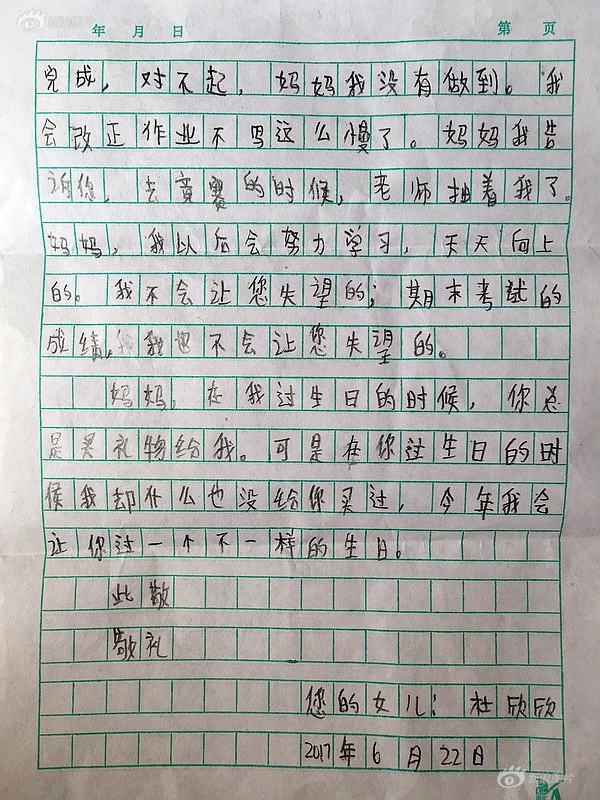 年 月 日 第 页
完成，对不起，妈妈我没有做到。我
会改正作业不写这么慢了。妈妈我告
诉你，去竞赛的时候，老师抽着我了。
妈妈，我以后会努力学习，天天向上
的。我不会让您失望的；期末考试的
成绩，我也不会让您失望的。
妈妈，在我过生日的时候，你总
是买礼物给我。可是在你过生日的时
候我却什么也没给你买过，今年我会
让你过一个不一样的生日。
此敬
敬礼
您的女儿：杜欣欣
2017年6月22日
新浪图片